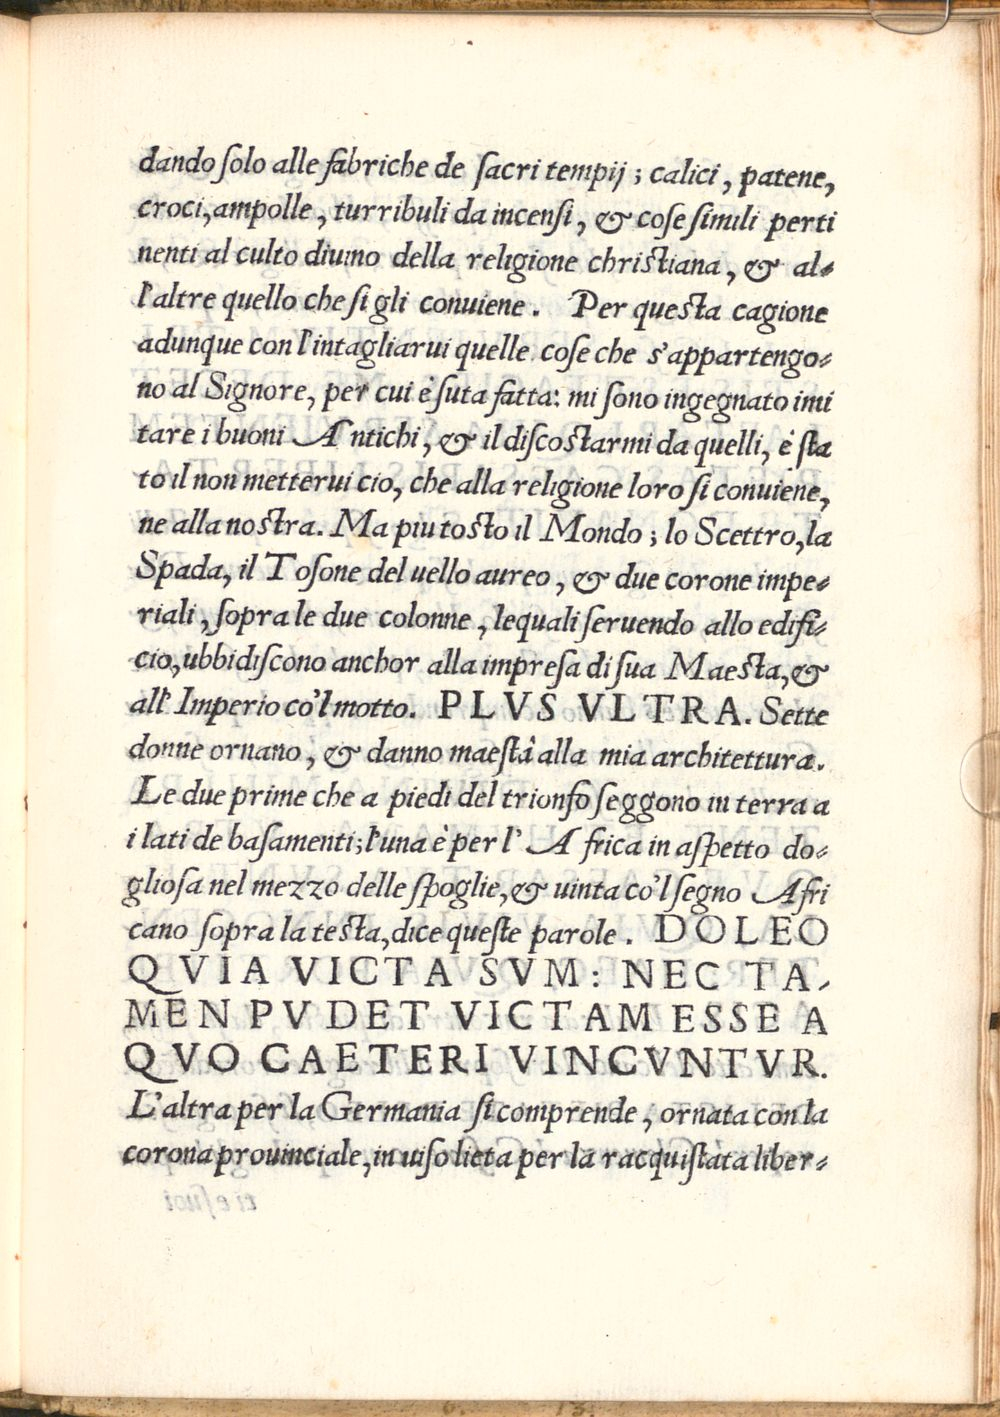 dando ſolo alle fabriche de ſacri tempij ; calici , patene,
croci, ampolle , turribuli da incenſi , & coſe ſimili perti
nenti al culto diuino della religione chriſtiana , & al-
l'altre quello che ſi gli conuiene . Per queſta cagione
adunque con l'intagliarui quelle coſe che s'appartengo-
no al Signore, per cui è ſuta fatta: mi ſono ingegnato imi
tare i buoni Antichi, & il diſcoſtarmi da quelli, è ſta
to il non metterui cio, che alla religione loro ſi conuiene,
ne alla noſtra. Ma piu toſto il Mondo ; lo Scettro, la
Spada, il Toſone del uello aureo , & due corone impe-
riali , ſopra le due colonne , lequali ſeruendo allo edifi-
cio, ubbidiſcono anchor alla impreſa di ſua Maeſta, &
all' Imperio co'l motto. PLVS VLTRA. Sette
donne ornano , & danno maeſtà alla mia architettura.
Le due prime che a piedi del trionfo ſeggono in terra a
i lati de baſamenti; l'una è per l' Africa in aſpetto do-
glioſa nel mezzo delle ſpoglie, & uinta co'l ſegno Afri
cano ſopra la teſta, dice queſte parole . DOLEO
QVIA VICTA SVM: NEC TA-
MEN PVDET VICTAM ESSE A
QVO CAETERI VINCVNTVR.
L'altra per la Germania ſi comprende , ornata con la
corona prouinciale, in uiſo lieta per la racquiſtata liber-